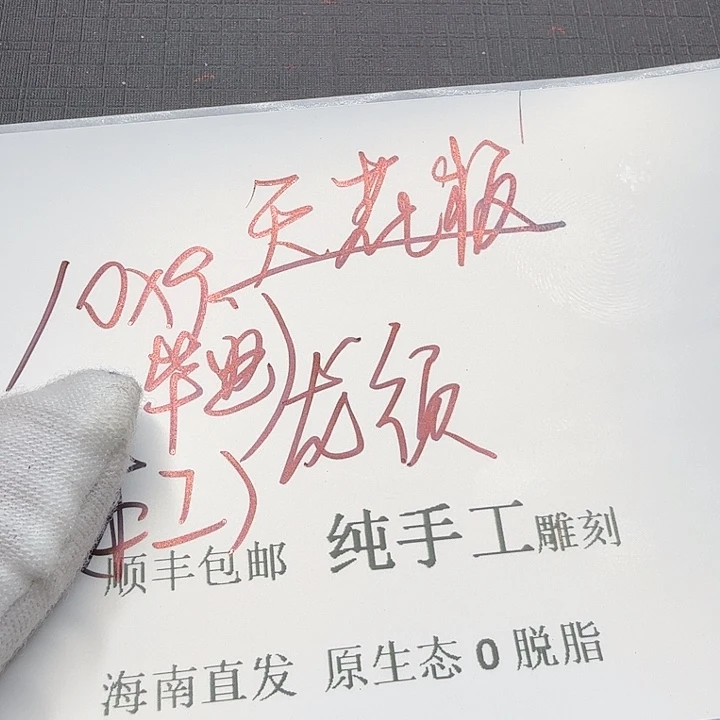 天花板
10x9
毕业)龙须
手工)
顺丰包邮 纯手工雕刻
海南直发 原生态0脱脂